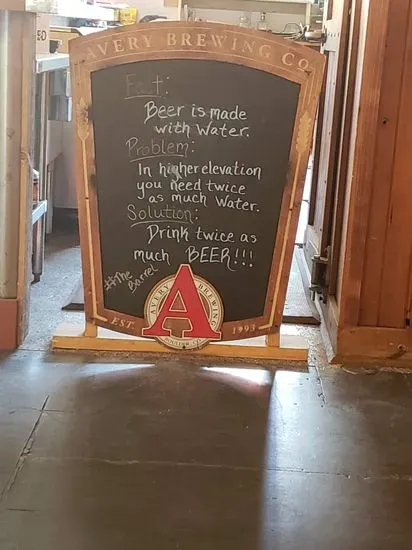 AVERY BREWING CO.
Fact:
Beer is made
with Water.
Problem:
In higher elevation
you need twice
as much Water.
Solution:
Drink twice as
much BEER!!!
#The
Barrel
A
AVERY BREWING
EST. 1993